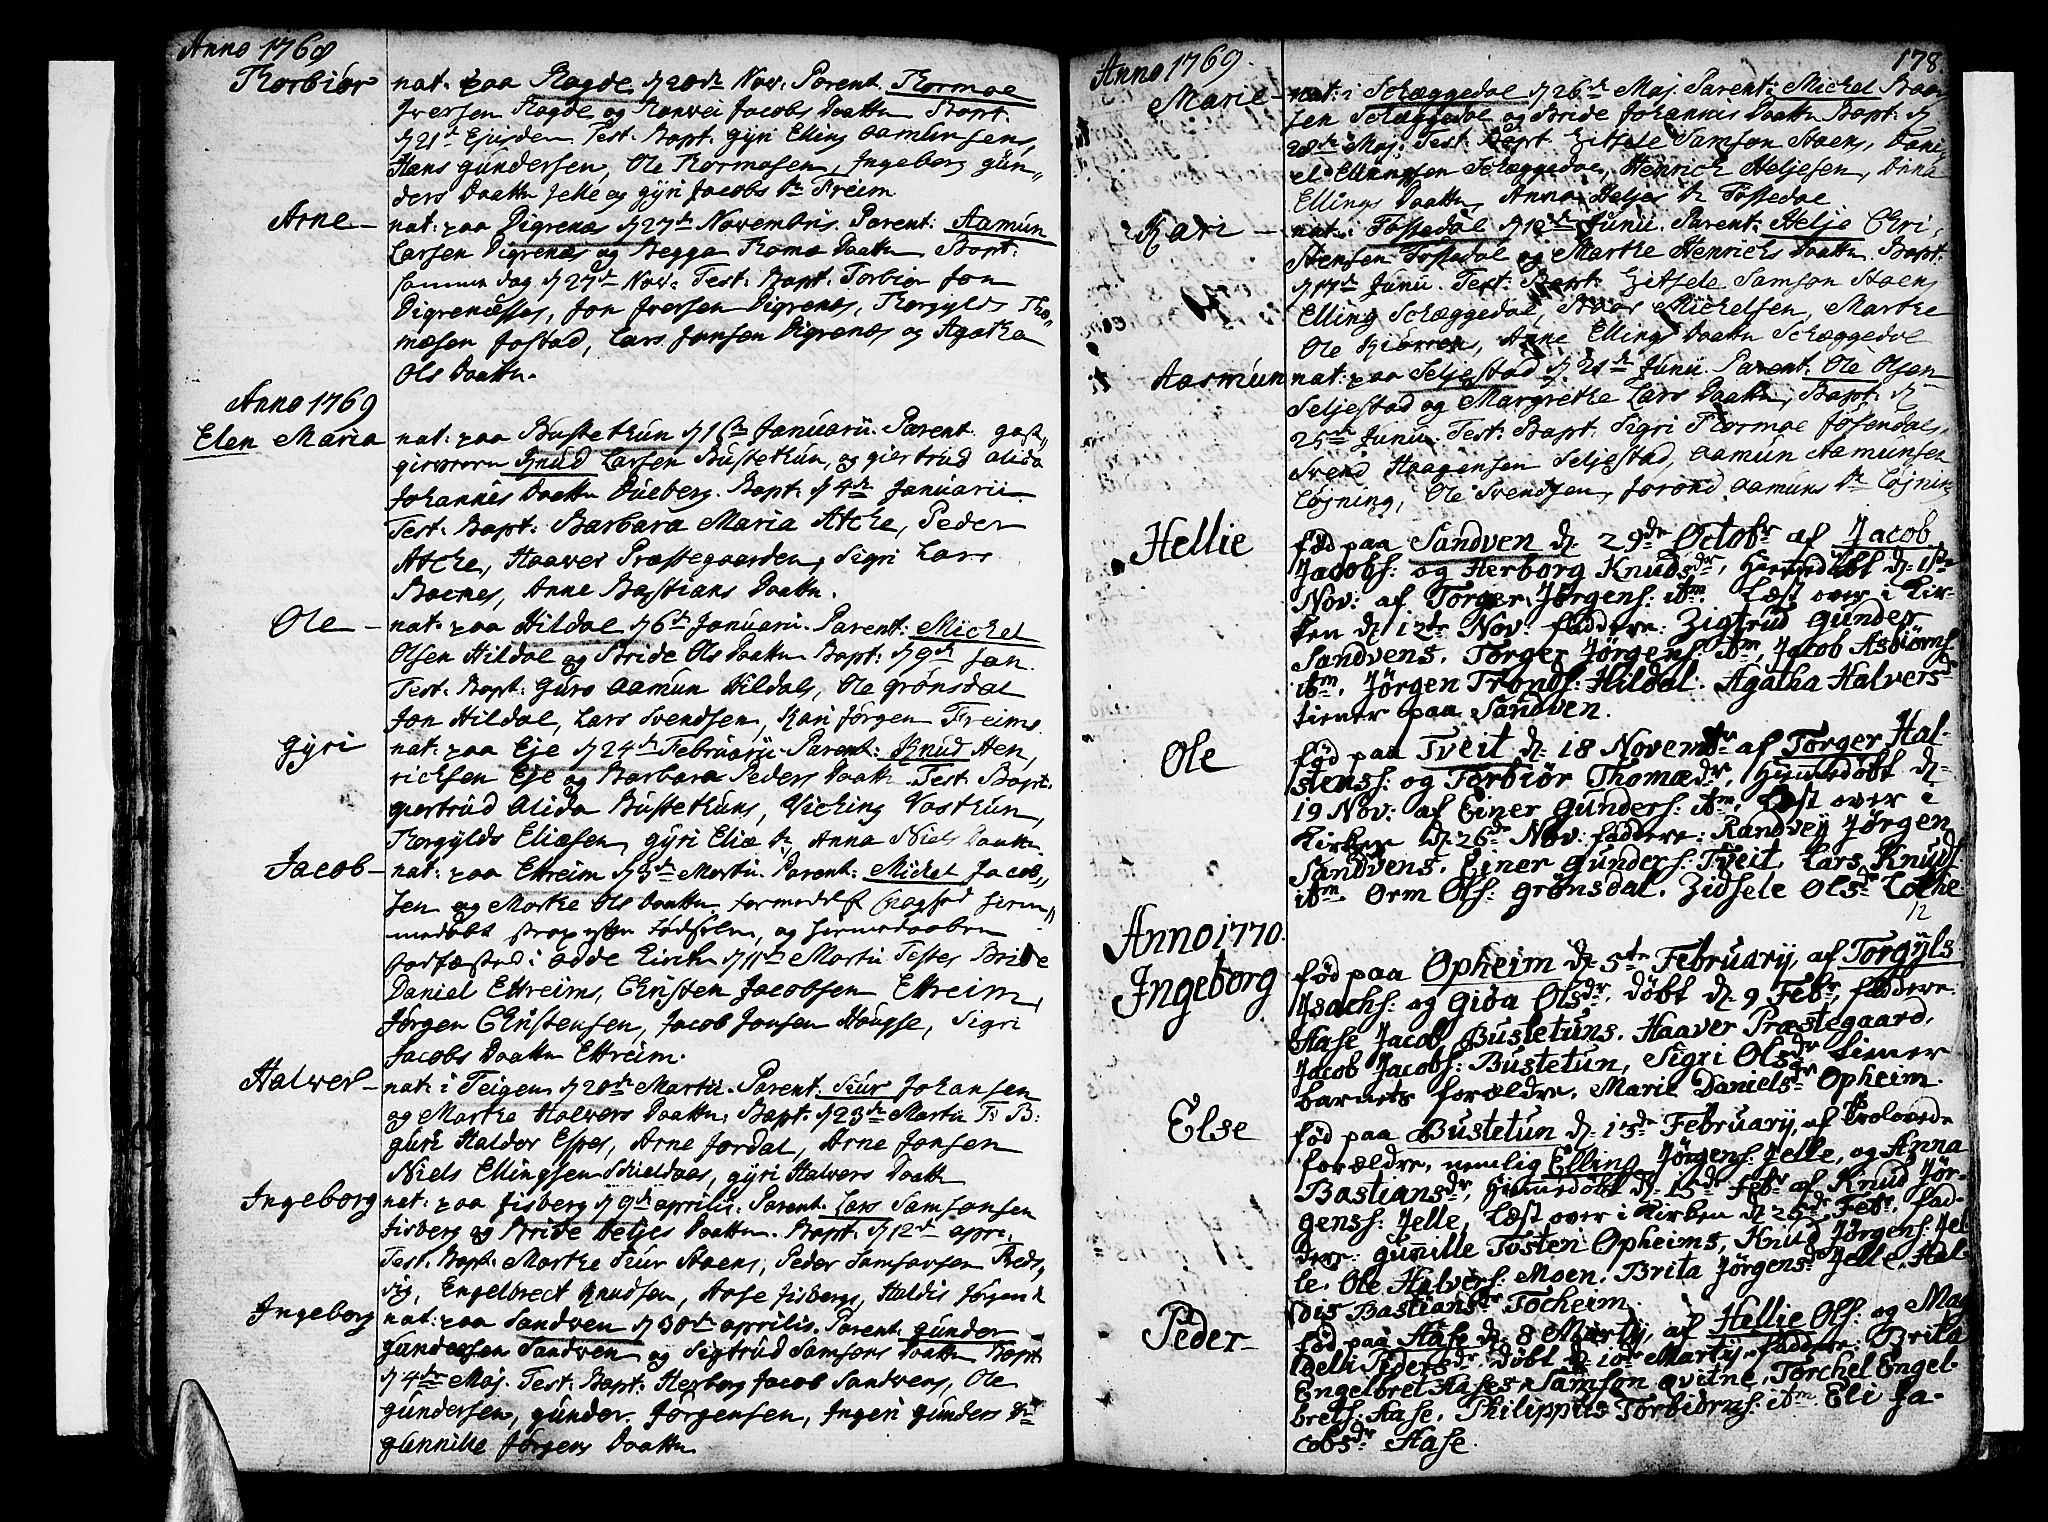 Anno 1768
Thorbiør nat: paa Ragde d 20de Nov: Parent. Thormoe
Iversen Ragde og Ranvei Jacobs Daatter Bapt.
d 21de Ejusdem Test. Bapt. Gyri Elling Aamunsens,
Hans Gundersen, Ole Thormosen, Ingeborg Gun-
ders Daatter Jelle og Gyri Jacobs Dr Freim
Arne – nat: paa Digrenæs d 27de Novembris. Parent: Aamun
Larsen Digrenæs og Begga Thomæ Daatter Bapt:
samme dag d 27de Nov: Test: Bapt: Torbiør Jon
Digrenæsses, Jon Iversen Digrenæs, Thorgylds Tho-
mæsen Jostad, Lars Jonsen Digrenæs og Agatha
Ols Daatter.
Anno 1769
Elen Maria nat: paa Bustethun d 1ste Januarii. Parent. gast-
giveren Knud Larsen Bustethun, og Giertrud Alida
Johannis Daatter Dueberg. Bapt: d 4de Januarii
Test: Bapt: Barbara Maria Atche, Peder
Atche, Haaver Præstegaarden, Sigri Lars
Boenes, Anne Bastians Daatter.
Ole – nat: paa Hildal d 6te Januarii. Parent: Michel
Olsen Hildal og Bride Ols Daatter Bapt: d 9de Jan.
Test: Bapt: Guro Aamun Hildals, Ole Grønsdal
Jon Hildal, Lars Svendsen, Kari Jørgen Freims.
Gyri nat: paa Eje d 24de Februarii. Parent: Knud Hen-
richsen Eje og Barbara Peders Daatter Test: Bapt.
Giertrud Alida Bustethuns, Viching Vasthun,
Thorgylds Eliæsen, Gyri Eliæ Dr, Anna Niels Daatter
Jacob – nat: paa Ettreim d 3de Martii. Parent: Michel Jacob-
sen og Marthe Ols Daatter, formedelst svaghed hiem-
medøbt strax efter fødselen, og hiemmedaaben
stadfæsted i Odde Kirche d 11te Martii Testes Bride
Daniel Ettreims, Christen Jacobsen Ettreim,
Jørgen Christensen, Jacob Jonsen Hougse, Sigri
Jacobs Daatter Ettreim.
Halver – nat: i Teigen d 20de Martii. Parent: Siur Johansen
og Marthe Halvers Daatter, Bapt: d 23de Martii T: B:
Guri Haldor Espes, Arne Jordal, Arne Jonsen
Niels Ellingsen Schieldaas, Gyri Halvers Daatter
Ingeborg nat: paa Jisberg d 9de Aprilis. Parent. Lars Samsonsen
Jisberg og Bride Heljes Daatter. Bapt: d 12te apri.
Test. Bapt: Marthe Siur Staens, Peder Samsonsen Freds-
vig, Engelbrect Knudsen, Aase Jisbergs, Haldis Jørgen Dr
Ingeborg nat: paa Sandven d 30te Aprilis. Parent: Gunder
Gundersen Sandven og Sigtrud Samsons Daatter Bapt:
d 4de Maj. Test: Bapt: Herborg Jacob Sandvens, Ole
Gundersen, Gunder Jørgensen, Ingeri Gunders Dr
Gunnilde Jørgens Daatter
178.
Anno 1769.
Marie – nat: i Schæggedal d 26de Maj. Parent: Michel Baar-
sen Schæggedal og Bride Johannis Daatter Bapt: d
28de Maj. Test: Bapt: Zitsele Samson Staens, Dani-
el Ellingsen Schæggedal, Henrich Heljesen, Anna
Ellings Daatter, Anna Heljes Dr Tøssedal
Kari – nat: i Tøssedal d 12te Junii. Parent: Helje Chri-
stensen Tøssedal og Marthe Henrichs Daatter. Bapt:
d 17de Junii. Test: Bapt: Zitsele Samson Staens
Elling Schæggedal, Baar Michelsen, Marthe
Ole Kiørrens, Anne Ellings Daatter Schæggedal
Aasmun nat: paa Seljestad d 21de Junii Parent: Ole Olsen
Seljestad og Margrethe Lars Daatter, Bapt: d
25de Junii. Test: Bapt: Sigri Thormoe Jøsendals
Svend Haagensen Seljestad, Aamun Aamunsen
Løjning, Ole Svendsen, Jorond Aamuns Dr Løjning
Hellie fød paa Sandven d. 29de Octobr af Jacob
Jacobs: og Herborg Knudsdr, hiemedøbt d: 1ste
Nov: af Torger Jørgens: ibm. Læst over i Kir-
ken d. 12te Nov: faddere: Zigtrud Gunder
Sandvens. Torger Jørgens ibm, Jacob Asbiørns
ibm. Jørgen Tronds: Hildal. Agatha Halversdr
tiener paa Sandven.
Ole fød paa Tveit d: 18 Novembr af Torger Hal-
stens: og Torbiør Thomædr, hiemedøbt d:
19 Nov: af Einer Gunders: ibm, Læst over i
Kirken d. 26de Nov: faddere: Randvej Jørgen
Sandvens. Einer Gunders: Tveit, Lars Knuds:
ibm. Orm Ols: Grønsdal. Zidsele Olsdr Lothe
12
Anno 1770.
Ingeborg fød paa Opheim d. 5te February, af Torgyls
Isachs: og Giöa Olsdr. døbt d. 9 Febr, faddere:
Aase Jacob Bustetuns. Haaver Præstegaard.
Jacob Jacobs: Bustetun, Sigri Olsdr tiener
barnets forældre. Marit Danielsdr Opheim.
Else fød paa Bustetun d. 13de February, af trolovede
forældre, nemlig Elling Jørgens: Jelle, og Anna
Bastiansdr, hiemedøbt d. 15de Febr af Knud Jør-
genss: Jelle, Læst over i Kirken d. 25de Febr. fad-
dere: Gunnille Tosten Opheims, Knud Jørgens: Jel-
le. Ole Halvers: Moen. Brita Jørgensdr Jelle. Hal-
dis Bastiansdr Tocheim.
Peder – fød paa Aase d. 8 Martij, af Hellie Ols: og Mag-
delli Pedersdr, døbt d. 10de Martij. faddere: Brita
Engelbret Aases. Samson Qvitne, Torchel Engel-
brets: Aase. Philippus Torbiørns: ibm. Eli Ja-
cobsdr Aase.